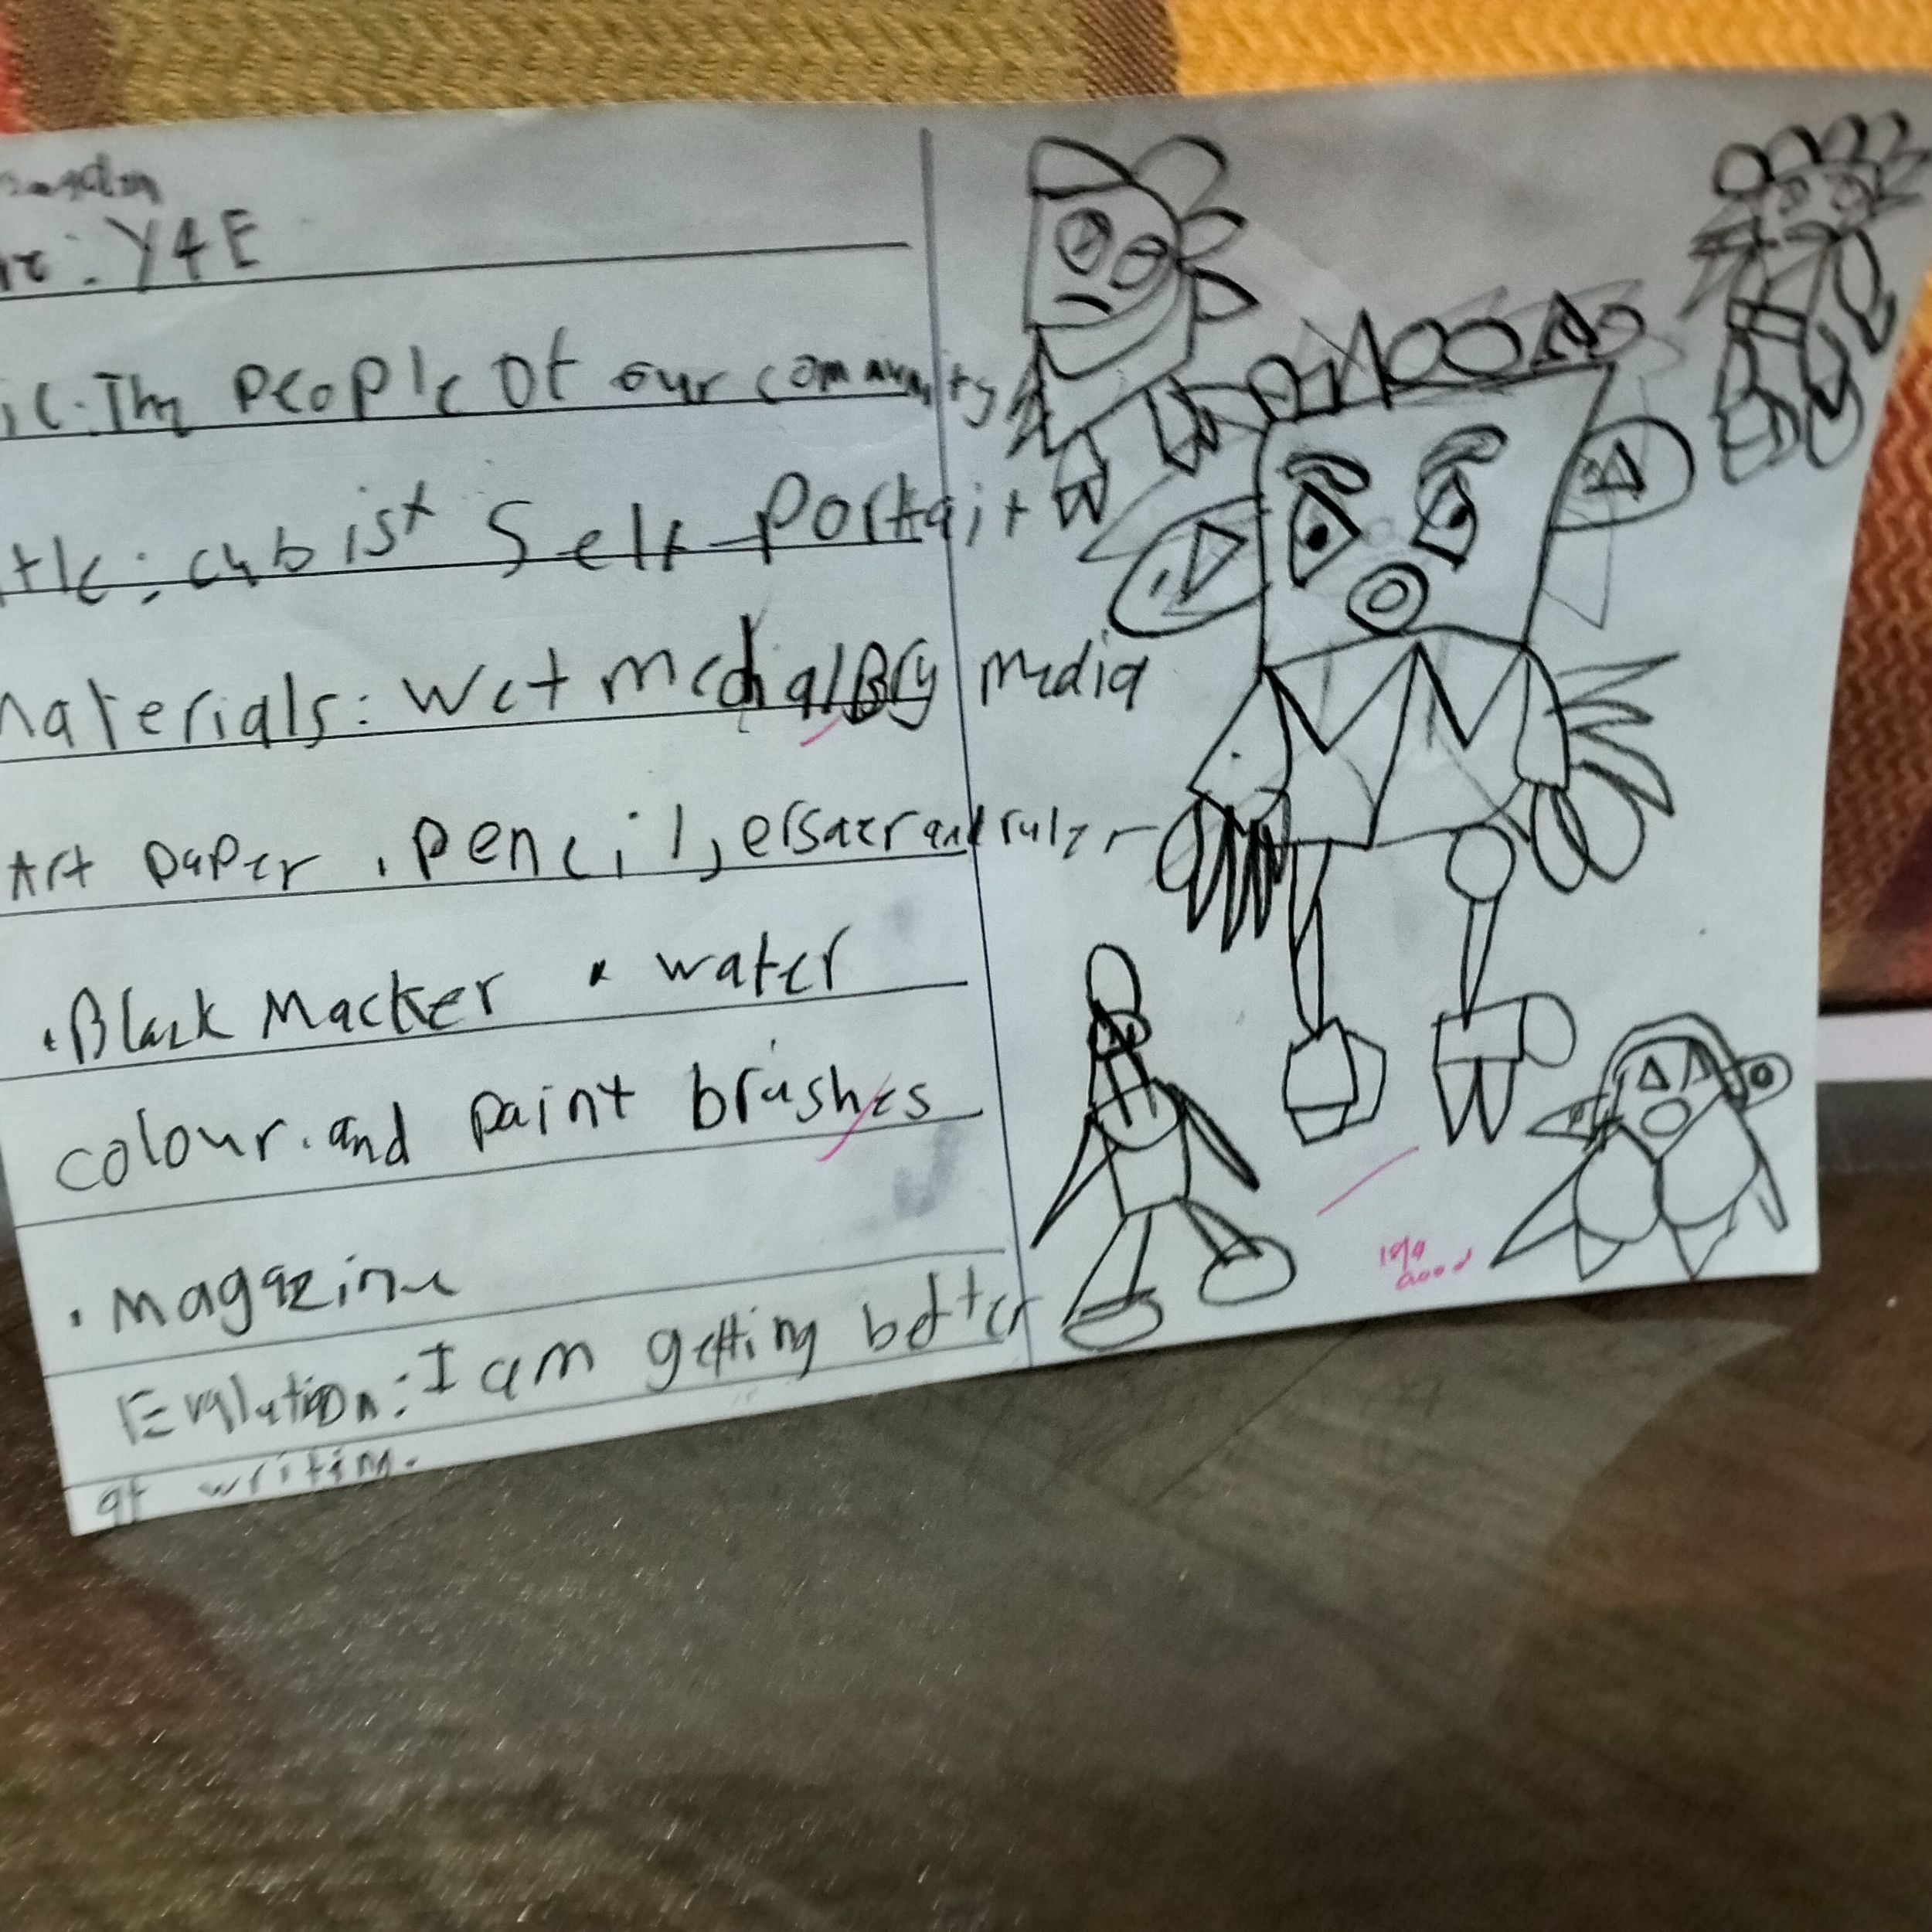 : Y4E
The People Of our community
cubist Self-Portait
Materials: Wet media/Dry media
Art paper . pencil, ersaerand ruler
. Black Macker . water
colour. and paint brushes
. Magazine
Evalution: I am getting better
at writing.
Good